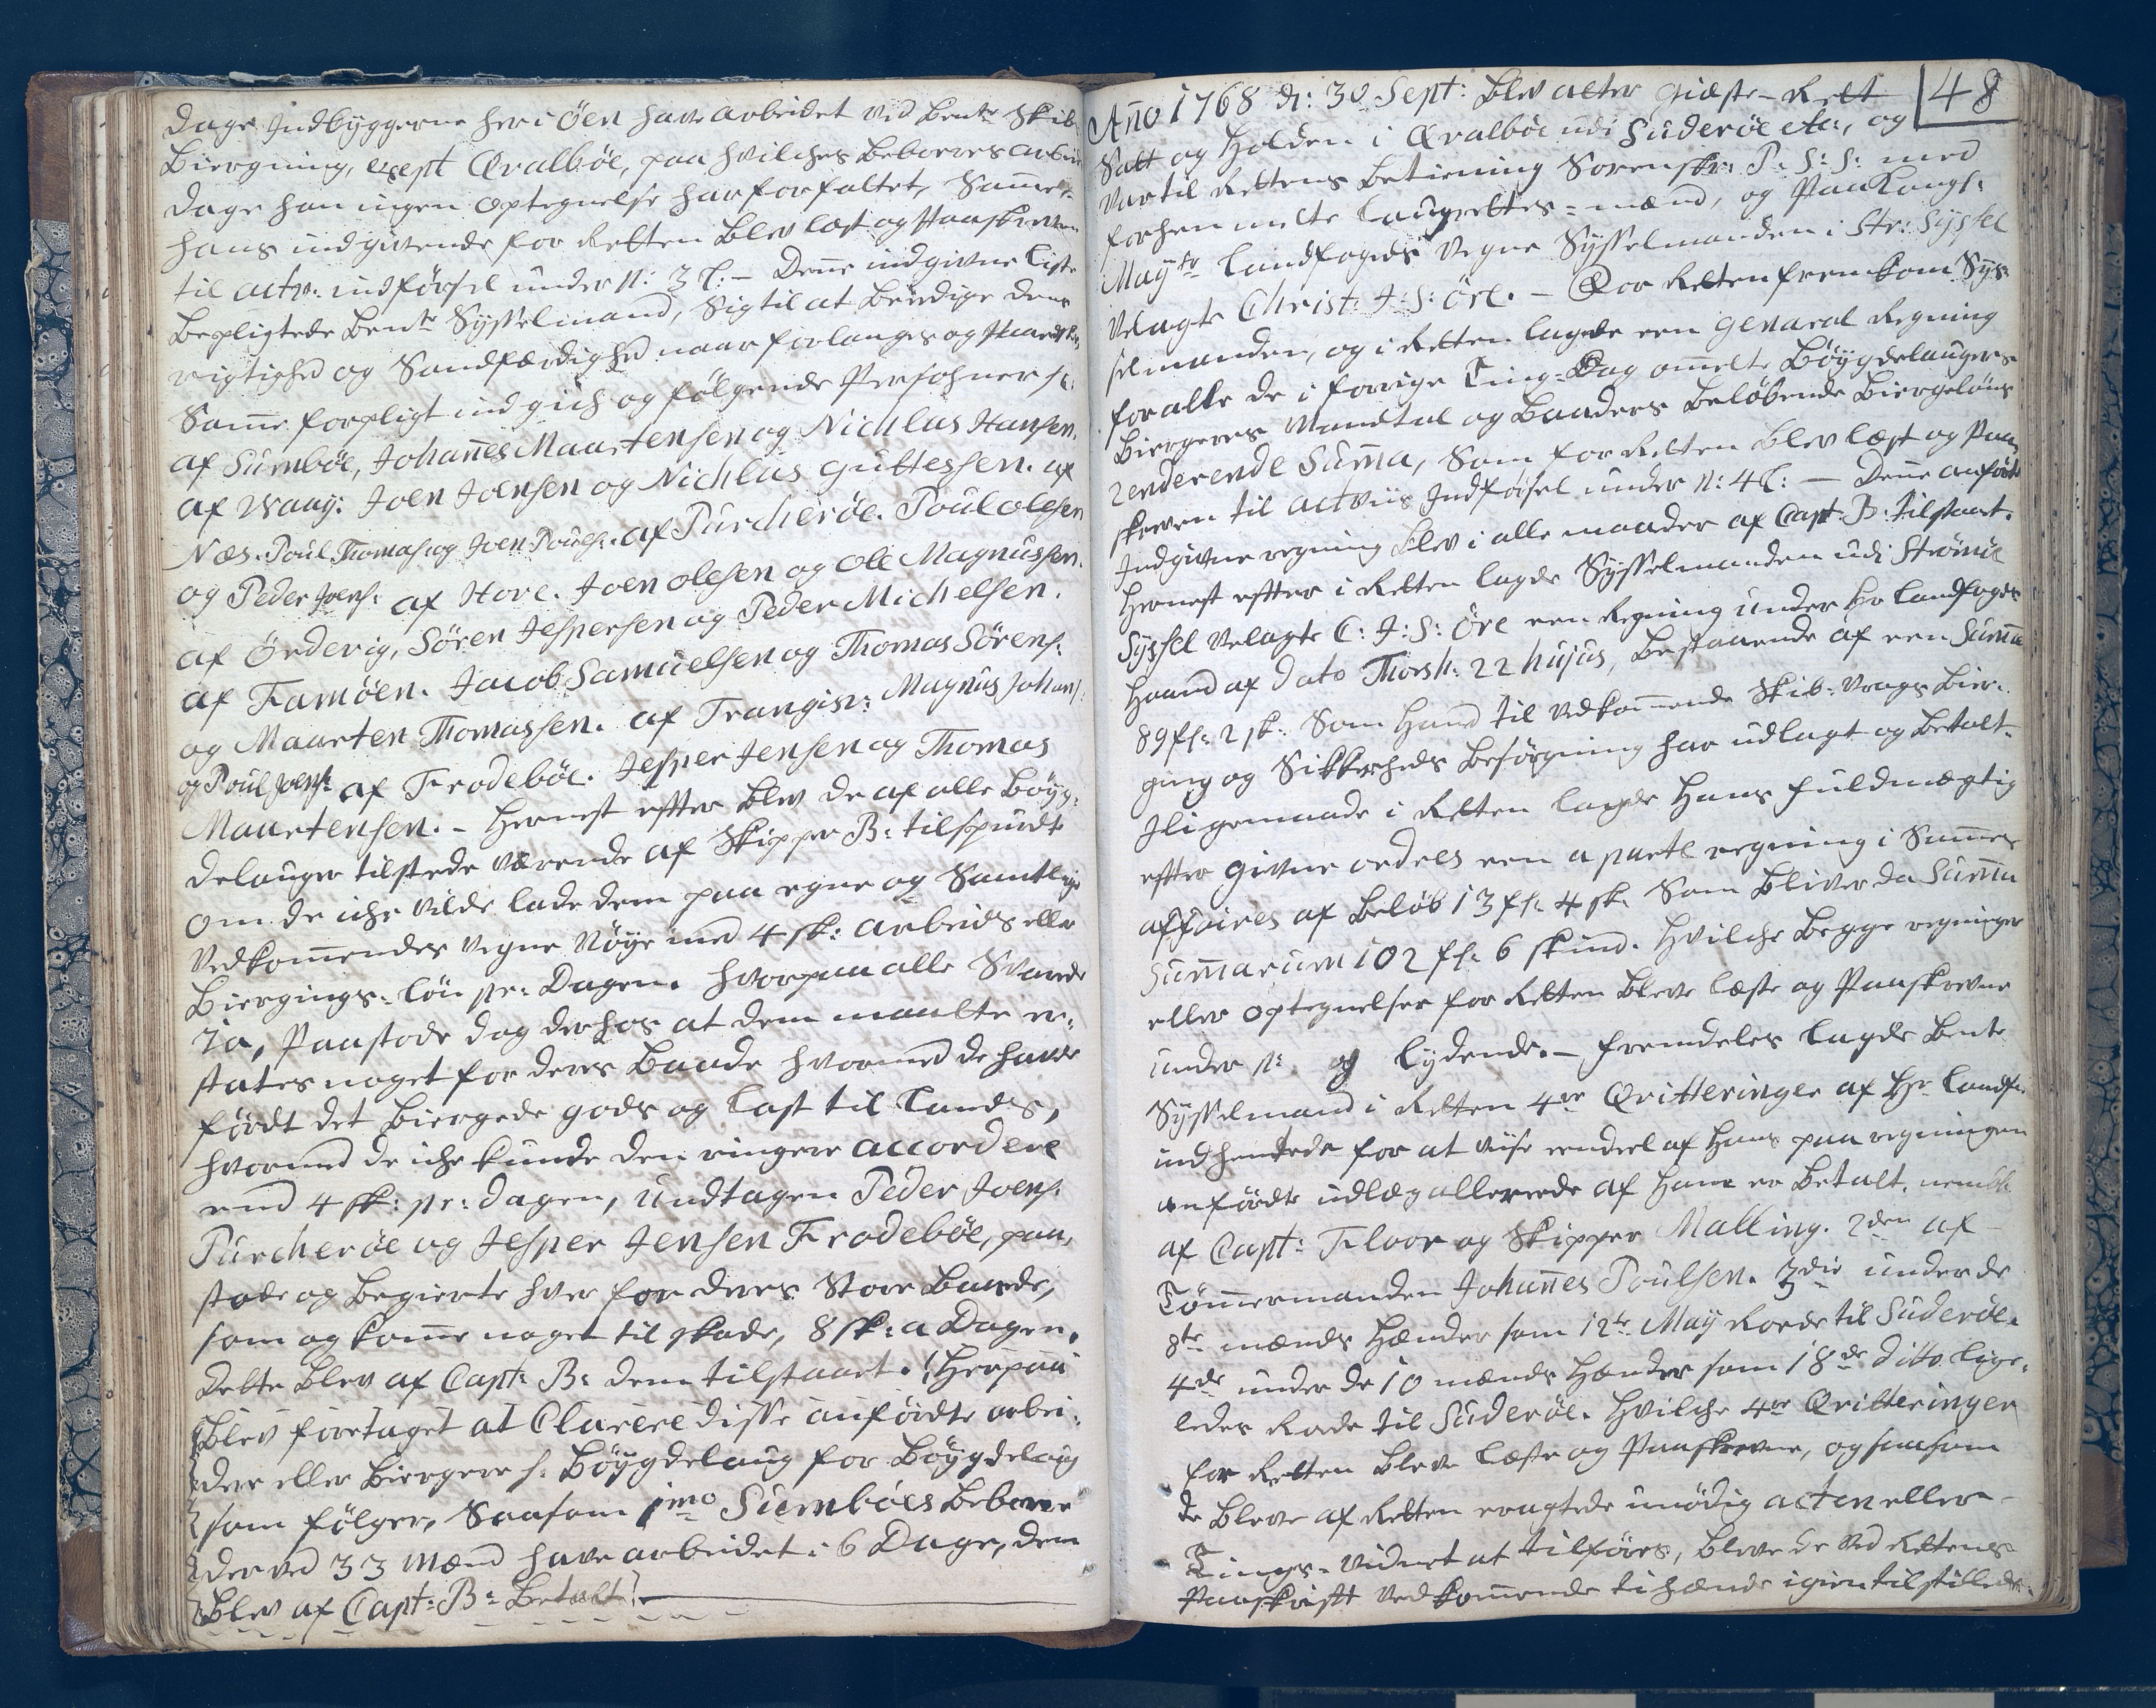 Dage Indbÿggerne her i Öen have arbeidet ved Bente Skib
Biergning, exept Qvalböe, paa hvilches Beboeres arbei
Dage han ingen optegnelse har forfattet, Samme
hans indgivende for Retten blev læst og Paaskreven
til actr: indförsel under N: 3 C: – Denne indgivne Liste
bepligtede Bente Sysselmand, Sig til at beædige dens
rigtighed og Sandfærdighed naar forlanges og Paaeskes,
Samme forpligt indgich og fölgende Persohner s:
af Sumböe, Johannes Maartensen og Nichlas Hansen.
af Waag: Joen Joensen og Nichlas Guttessen. af
Næs. Poul Thomas: og Joen Pouls:. af Purcheröe. Poul olesen
og Peder Joens: af Hove. Joen olesen og Ole Magnussen.
af Örderig, Sören Jespersen og Peder Michelsen.
af Famöen. Jacob Samuelsen og Thomas Sörens:
og Maarten Thomassen. af Trangisv: Magnus Johans:
og Poul Joens: af Frodeböe. Jesper Jensen og Thomas
Maartensen. – Hernest efter blev de af alle Böÿg=
delauger tilstede værende af Skipper B: tilspurdt
om de iche vilde lade dem paa egne og Samtlige
Vedkommendes vegne nöÿe med 4 sk: arbeids eller
Biergings=lön pr: Dagen. hvorpaa alle Svarede
Ja, Paastode dog derhos at dem maatte er=
states noget for deres Baade hvormed de havde
födt det Biergede gods og Last til Lands,
hvormed de iche kunde den ringere accordere
end 4 sk: pr: dagen, undtagen Peder Joens:
Purcheröe og Jesper Jensen Frodeböe, paa=
stode og begierte hver for deres Store Baade,
som og komme noget til skade, 8 sk: a Dagen.
Dette blev af Capt: B: dem tilstaaet. (Herpaa
blev foretaget at Clarere disse anförte arbei=
dere eller Biergere s: Böÿgdelaug for Böÿgdelaug
som fölger, Saasom 1mo Sumböes Beboere
der ved 33 Mænd have arbeidet i 6 Dage, dem
blev af Capt: B: Betalt)
48
Año 1768 d: 30 Sept: blev atter Giæste-Rett
Satt og Holden i Qvalböe udi Suderöe etc:, og
var til Rettens betiening Sorenskr: P: S: S: med
forhen melte Laugrettes=mænd, og Paa Kongl:
Maÿts Landfogeds vegne Sÿsselmanden i Str: Sÿssel
velagte Christ: J: S: Öre. – For Retten fremkom Sÿs=
selmanden, og i Retten lagde een Genaral Regning
for alle de i forrige Ting=Dag omelte Böÿgdelaugers
Biergeres Mandtal og Baaders belöbende Biergelöns
henderende Suma, Som for Retten blev læst og Paa
skreven til actviis Indförsel under N: 4 C: – Denne anförte
Indgivne regning blev i alle maader af Capt B: tilstaaet.
Hernest efter i Retten lagde Sÿsselmanden udi Strömöe
Sÿssel velagte C: J: S: Öre een Regning under Hr Landfogeds
Haand af dato Thorsh: 22 hujus, bestaaende af een Suma
89 fl: 2 sk: Som Hand til vedkommende Skib=vrags Bier=
ging og Sikkerheds besörgning har udlagt og betalt.
Jligemaade i Retten lagde Hans fuldmægtig
efter givne ordres een aparte regning i Samme
affaires af beløb 13 fl: 4 sk: Som bliver da Summa
Summarum 102 fl: 6 skind. Hvilche begge regninger
eller optegnelser for Retten bleve læste og Paaskrevne
under N: og lydende. – fremdeles lagde bente
Sÿsselmand i Retten 4re Qvitteringer af Hr Landf:
indhentede for at viise eendeel af Hans paa regningen
anförte udlæg allerrede af Ham er betalt. neml:
af Capt: Floor og Skipper Malling. 2den af
Tömmermanden Johannes Poulsen. 3die under de
8te mænds Hænder som 12te Maÿ Roede til Suderöe.
4de under de 10 mænds Hænder som 18de ditto lige=
ledes Roede til Suderöe. Hvilche 4re Qvitteringer
for Retten bleve læste og Paaskrevne, og saasom
de bleve af Retten eragtede unödig acten eller
Tings=vidnet at tilföres, bleve de ved Rettens
Paaskrift vedkommende ti hænde igien tilstillede.